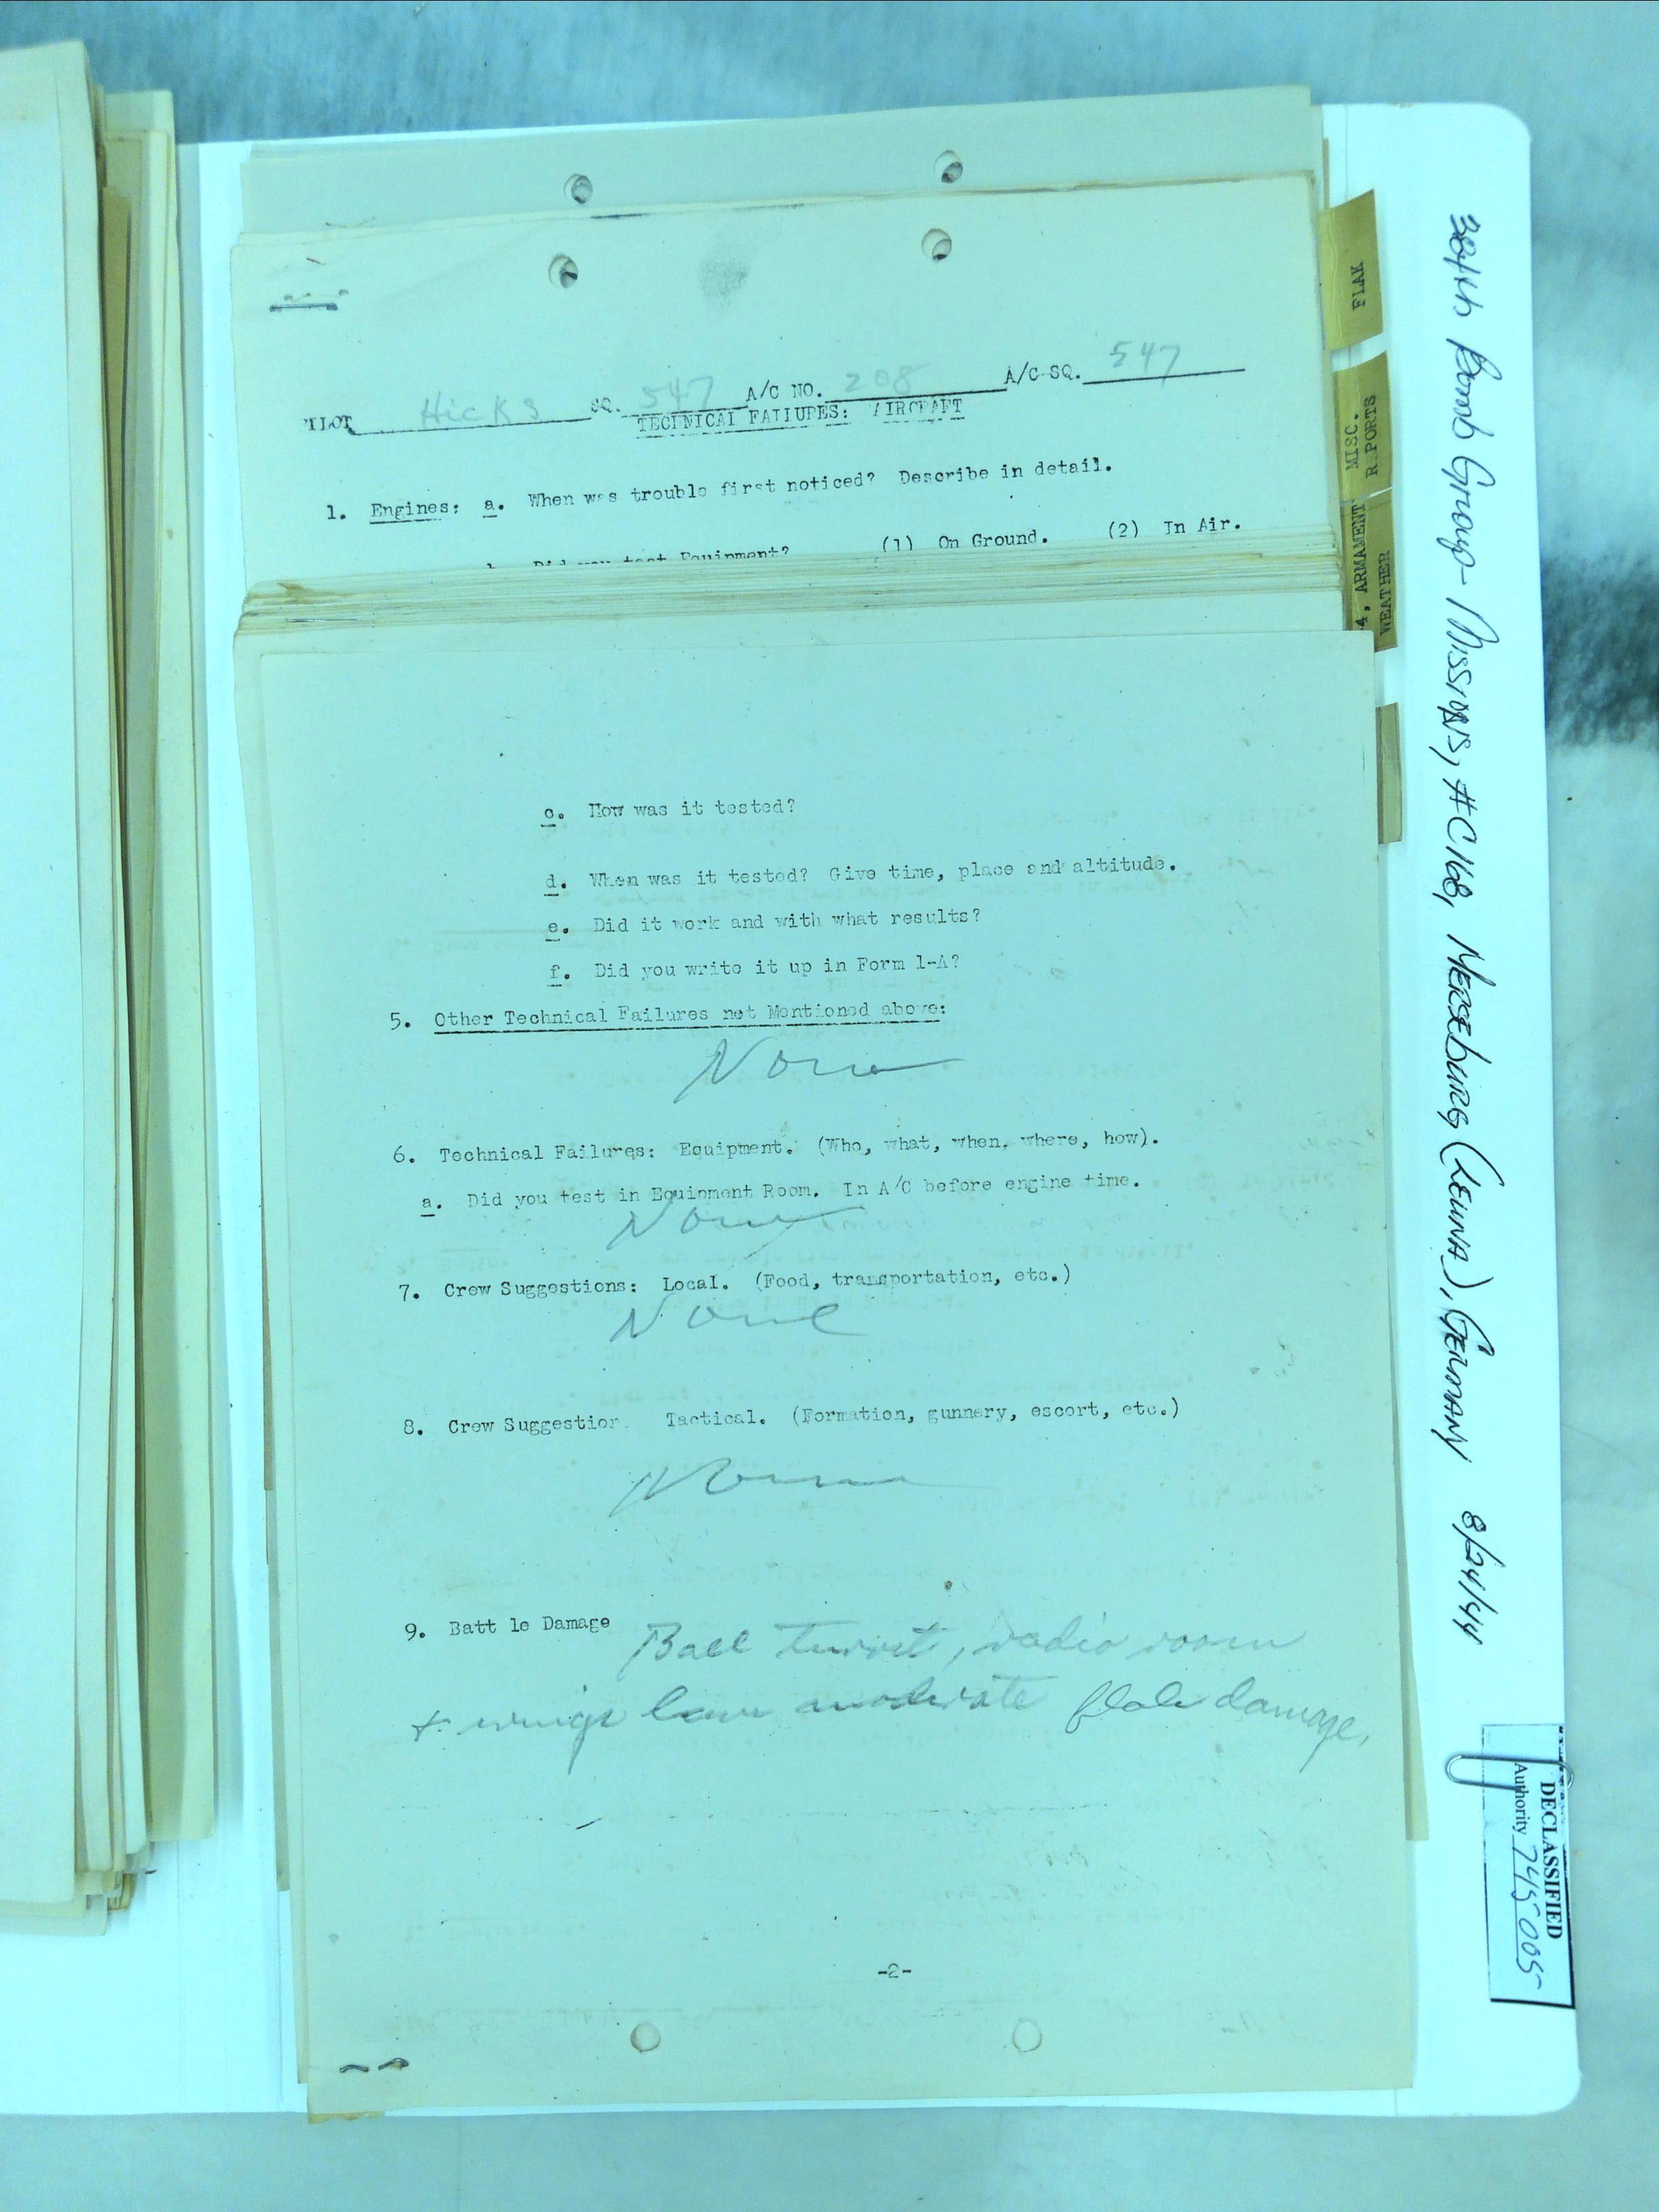 PILOT Hicks SQ. 547 A/C NO. 208 A/C SQ. 547
TECHNICAL FAILURES: AIRCRAFT
1. Engines: a. When was trouble first noticed? Describe in detail.
Did you test Equipment? (1) On Ground. (2) In Air.
c. How was it tested?
d. When was it tested? Give time, place and altitude.
e. Did it work and with what results?
f. Did you write it up in Form 1-A?
5. Other Technical Failures not Mentioned above:
None
6. Technical Failures: Equipment. (Who, what, when, where, how).
a. Did you test in Equipment Room. In A/C before engine time.
None
7. Crew Suggestions: Local. (Food, transportation, etc.)
None
8. Crew Suggestion Tactical. (Formation, gunnery, escort, etc.)
None
9. Batt le Damage Ball turret, radio room
+ wings have moderate flak damage.
-2-
FLAK
MISC.
REPORTS
4, ARMAMENT
WEATHER
384th Bomb Group - Missions, #C168, Merseburg (Leuna), Germany 8/24/44
DECLASSIFIED
Authority 745005